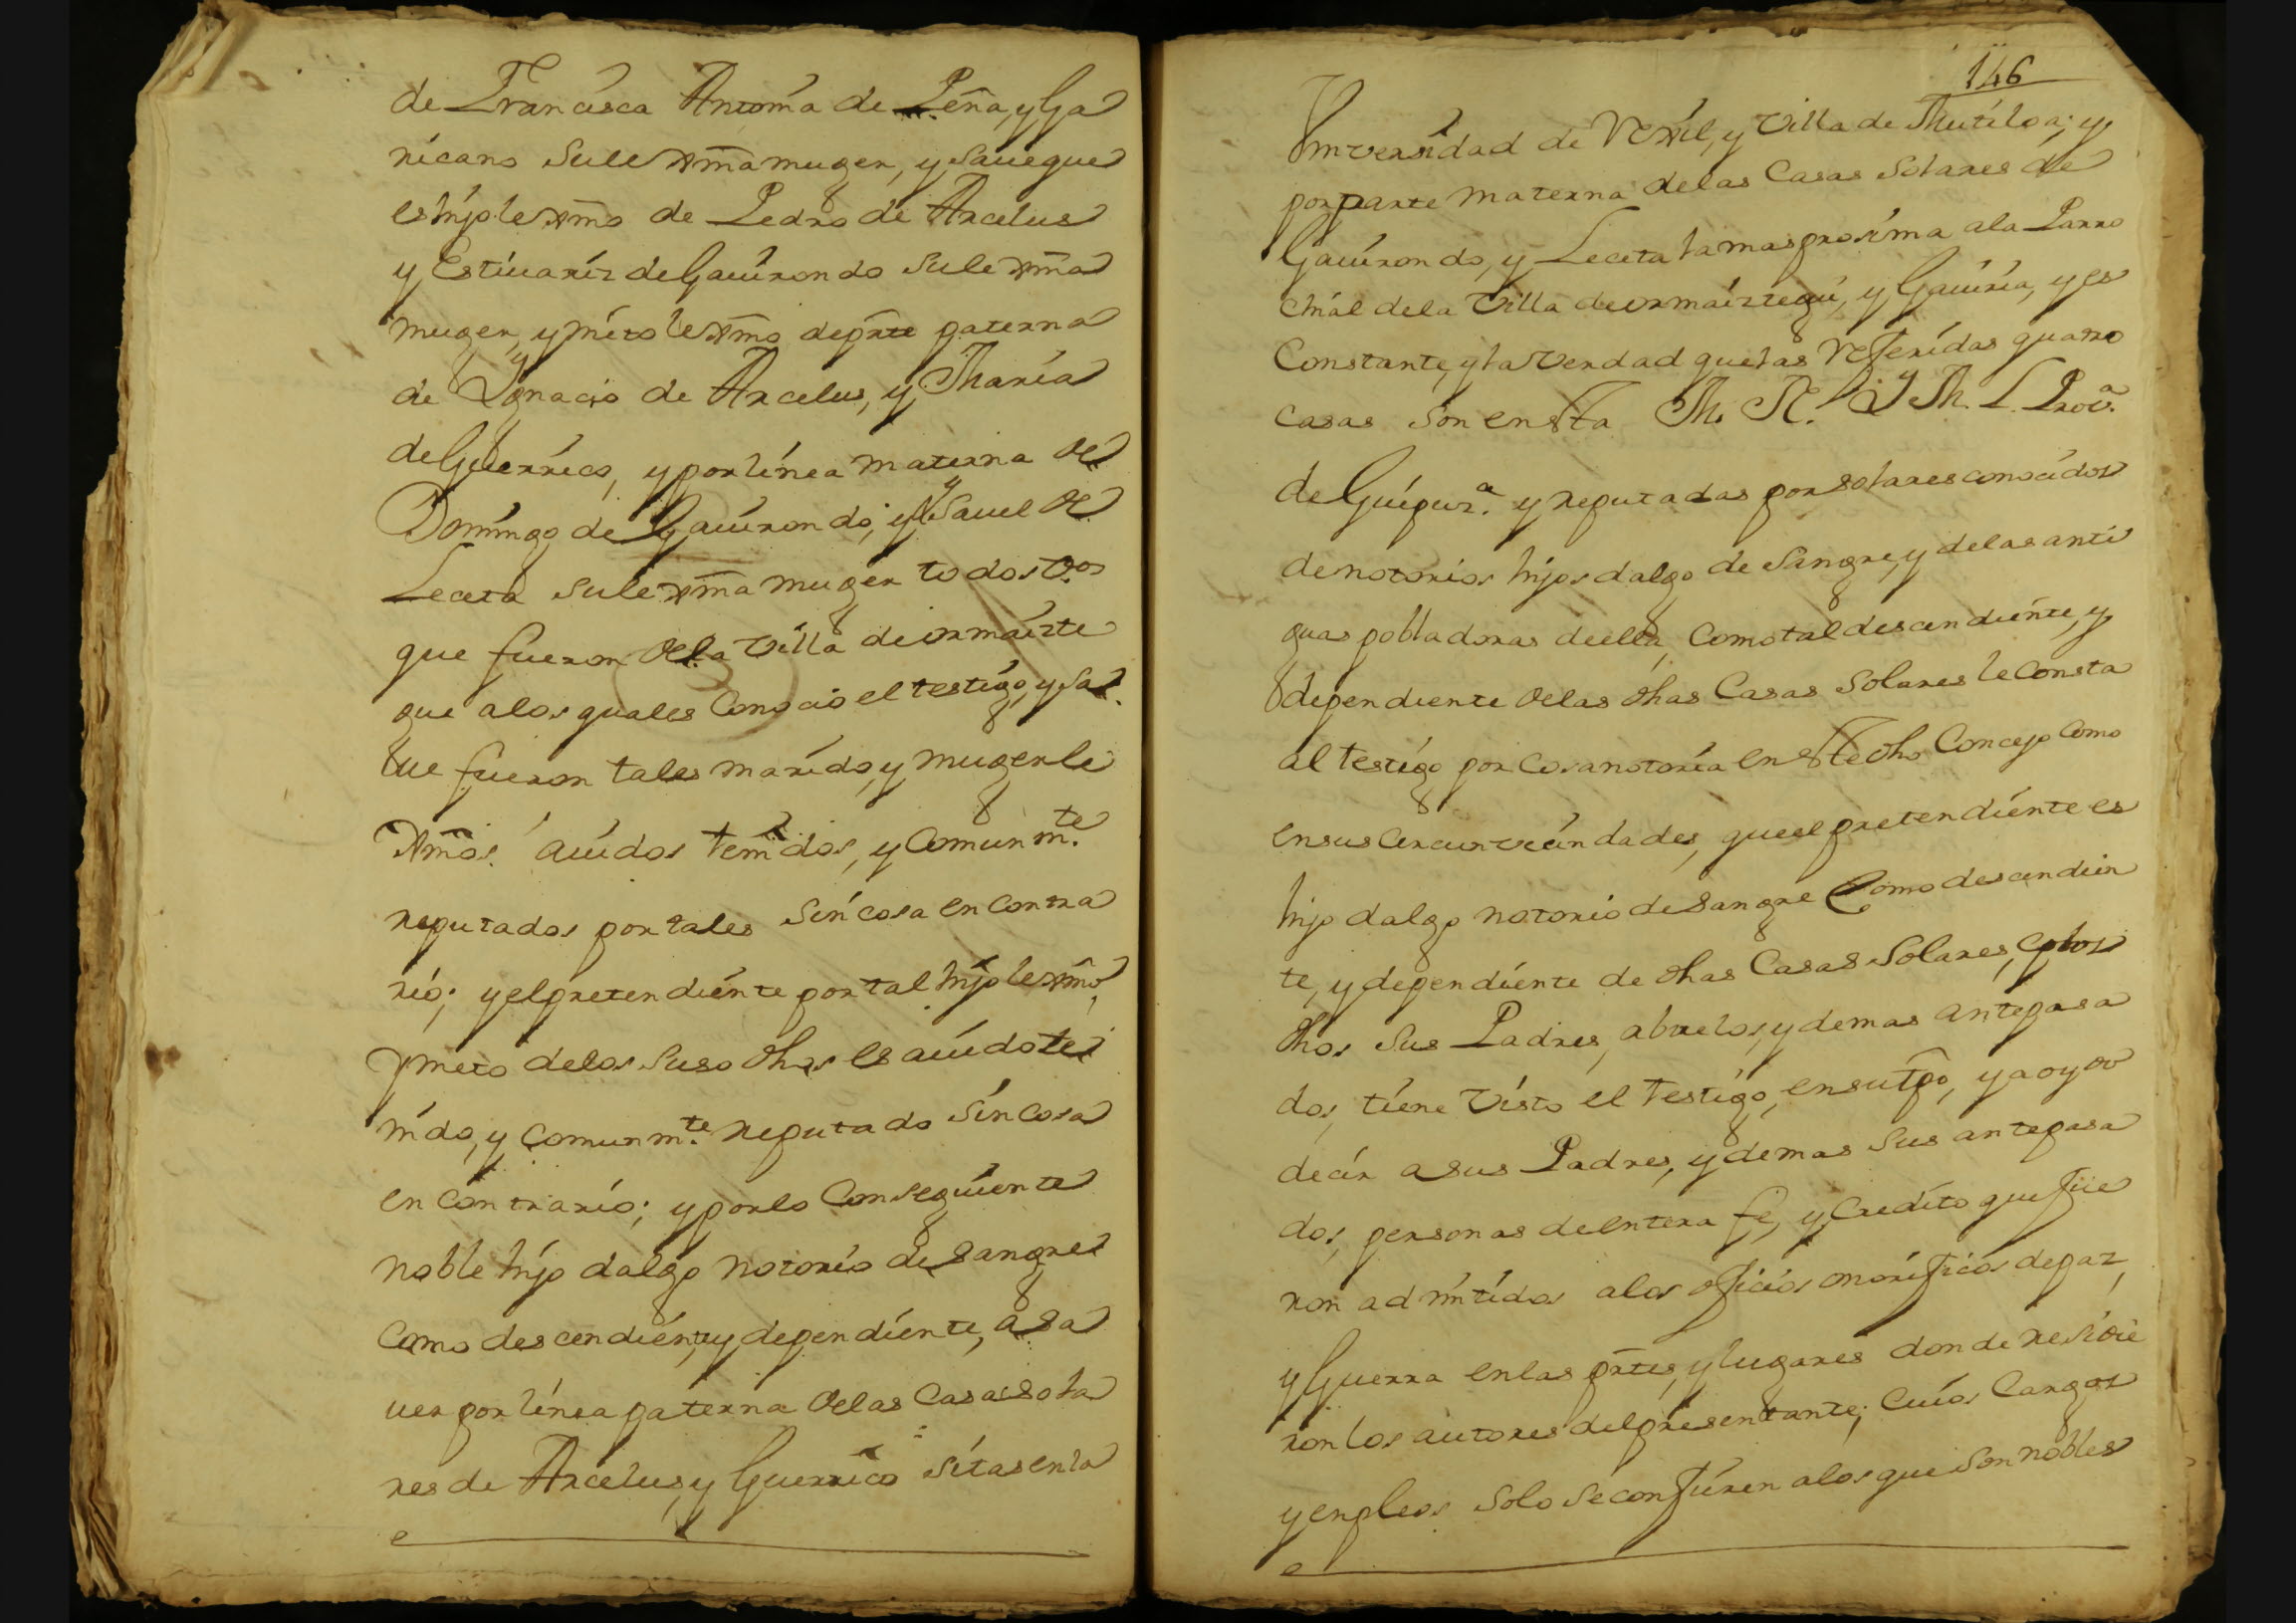 de Francisca Antonia de Peña, y Ga
ricano su lexma muger, y save que
es hijo lexmo de Pedro de Arcelus
y Estivariz de Gauirondo su lexma
muger, y nieto lexmo de prte paterna
de Ygnacio de Arcelus, y Maria
de Guerrico, y por linea materna de
Domingo de Gauirondo, y Ysavel de
Leceta su lexma muger todos vos
que fueron de la Villa de ormaizte
gue a los quales Conocio el testigo, y sa
ve fueron tales marido, y muger le
xmos. auidos tenidos, y Comunmte
reputados por tales sin cosa en contra
rio; y el pretendiente por tal hijo lexmo,
y nieto de los suso dhos es auido te
nido, y Comunmte reputado sin cosa
en contrario; y por lo Consiguiente
noble hijo dalgo notorio de sangre
Como descendiente, y dependiente, a sa
uer por linea paterna de las Casas sola
res de Arcelus, y Guerrico sitas en la
146
Vniversidad de Vexil, y Villa de Mutiloa; y
por parte materna de las Casas Solares de
Gauirondo, y Leceta la mas proxima a la Parro
chial de la Villa de ormaiztegui, y Gauiria, y es
Constante, y la verdad que las Referidas quatro
casas son en esta M. N. Y M. L. Prova
de Guipuza. y reputadas por solares conocidos
de notorios hijos dalgo de Sangre, y de las anti
guas pobladoras de ella, Como tal descendiente, y
dependiente de las dhas Casas Solares le Consta
al testigo por cosa notoria en este dho Concejo Como
en sus Circunvecindades, que el pretendiente es
hijo dalgo notorio de Sangre Como descendien
te, y dependiente de dhas Casas Solares, y los
dhos sus Padres, abuelos, y demas antepasa
dos, tiene visto el testigo, en su tpo, y a oydo
decir a sus Padres, y demas sus antepasa
dos, personas de entera fe, y Credito que fue
ron admitidos a los oficios onorificos de paz,
y Guerra en las prtes, y lugares donde residie
ron los autores del presentante; Cuios Cargos
y enpleos solo se confieren a los que son nobles